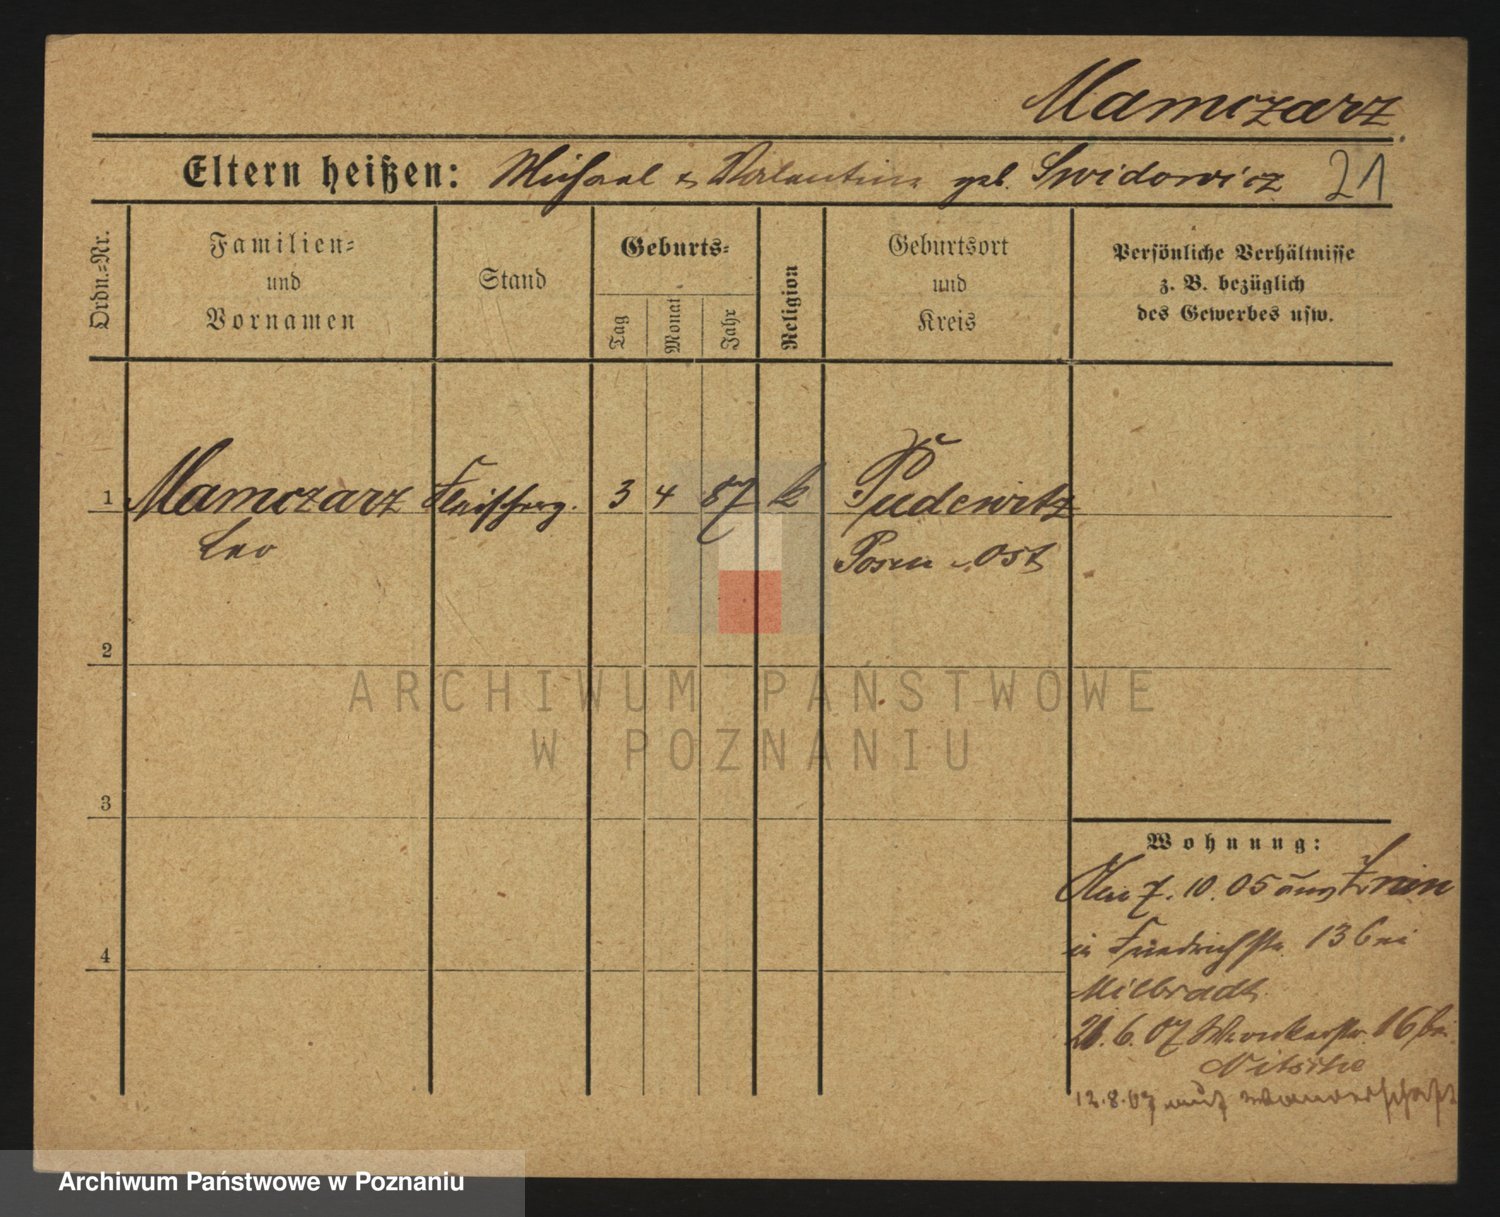 Mamczarz
Eltern heißen: Michael & Valentine geb. Swidowicz 21
Ordn.=Nr.
Familien=
und
Vornamen
Stand
Geburts=
Tag
Monat
Jahr
Religion
Geburtsort
und
Kreis
Persönliche Verhältnisse
z. B. bezüglich
des Gewerbes usw.
1 Mamczarz Fleischerg. 3 4 87 k Pudewitz
Leo Posen-Ost
2
3
4
Wohnung:
7. 10. 05 aus Znin
in Friedrichstr. 13 bei
Milbradt
21. 6. 07 16 bei
Nitsche
12.8.07 auf Wanderschaft
ARCHIWUM PAŃSTWOWE
W POZNANIU
Archiwum Państwowe w Poznaniu